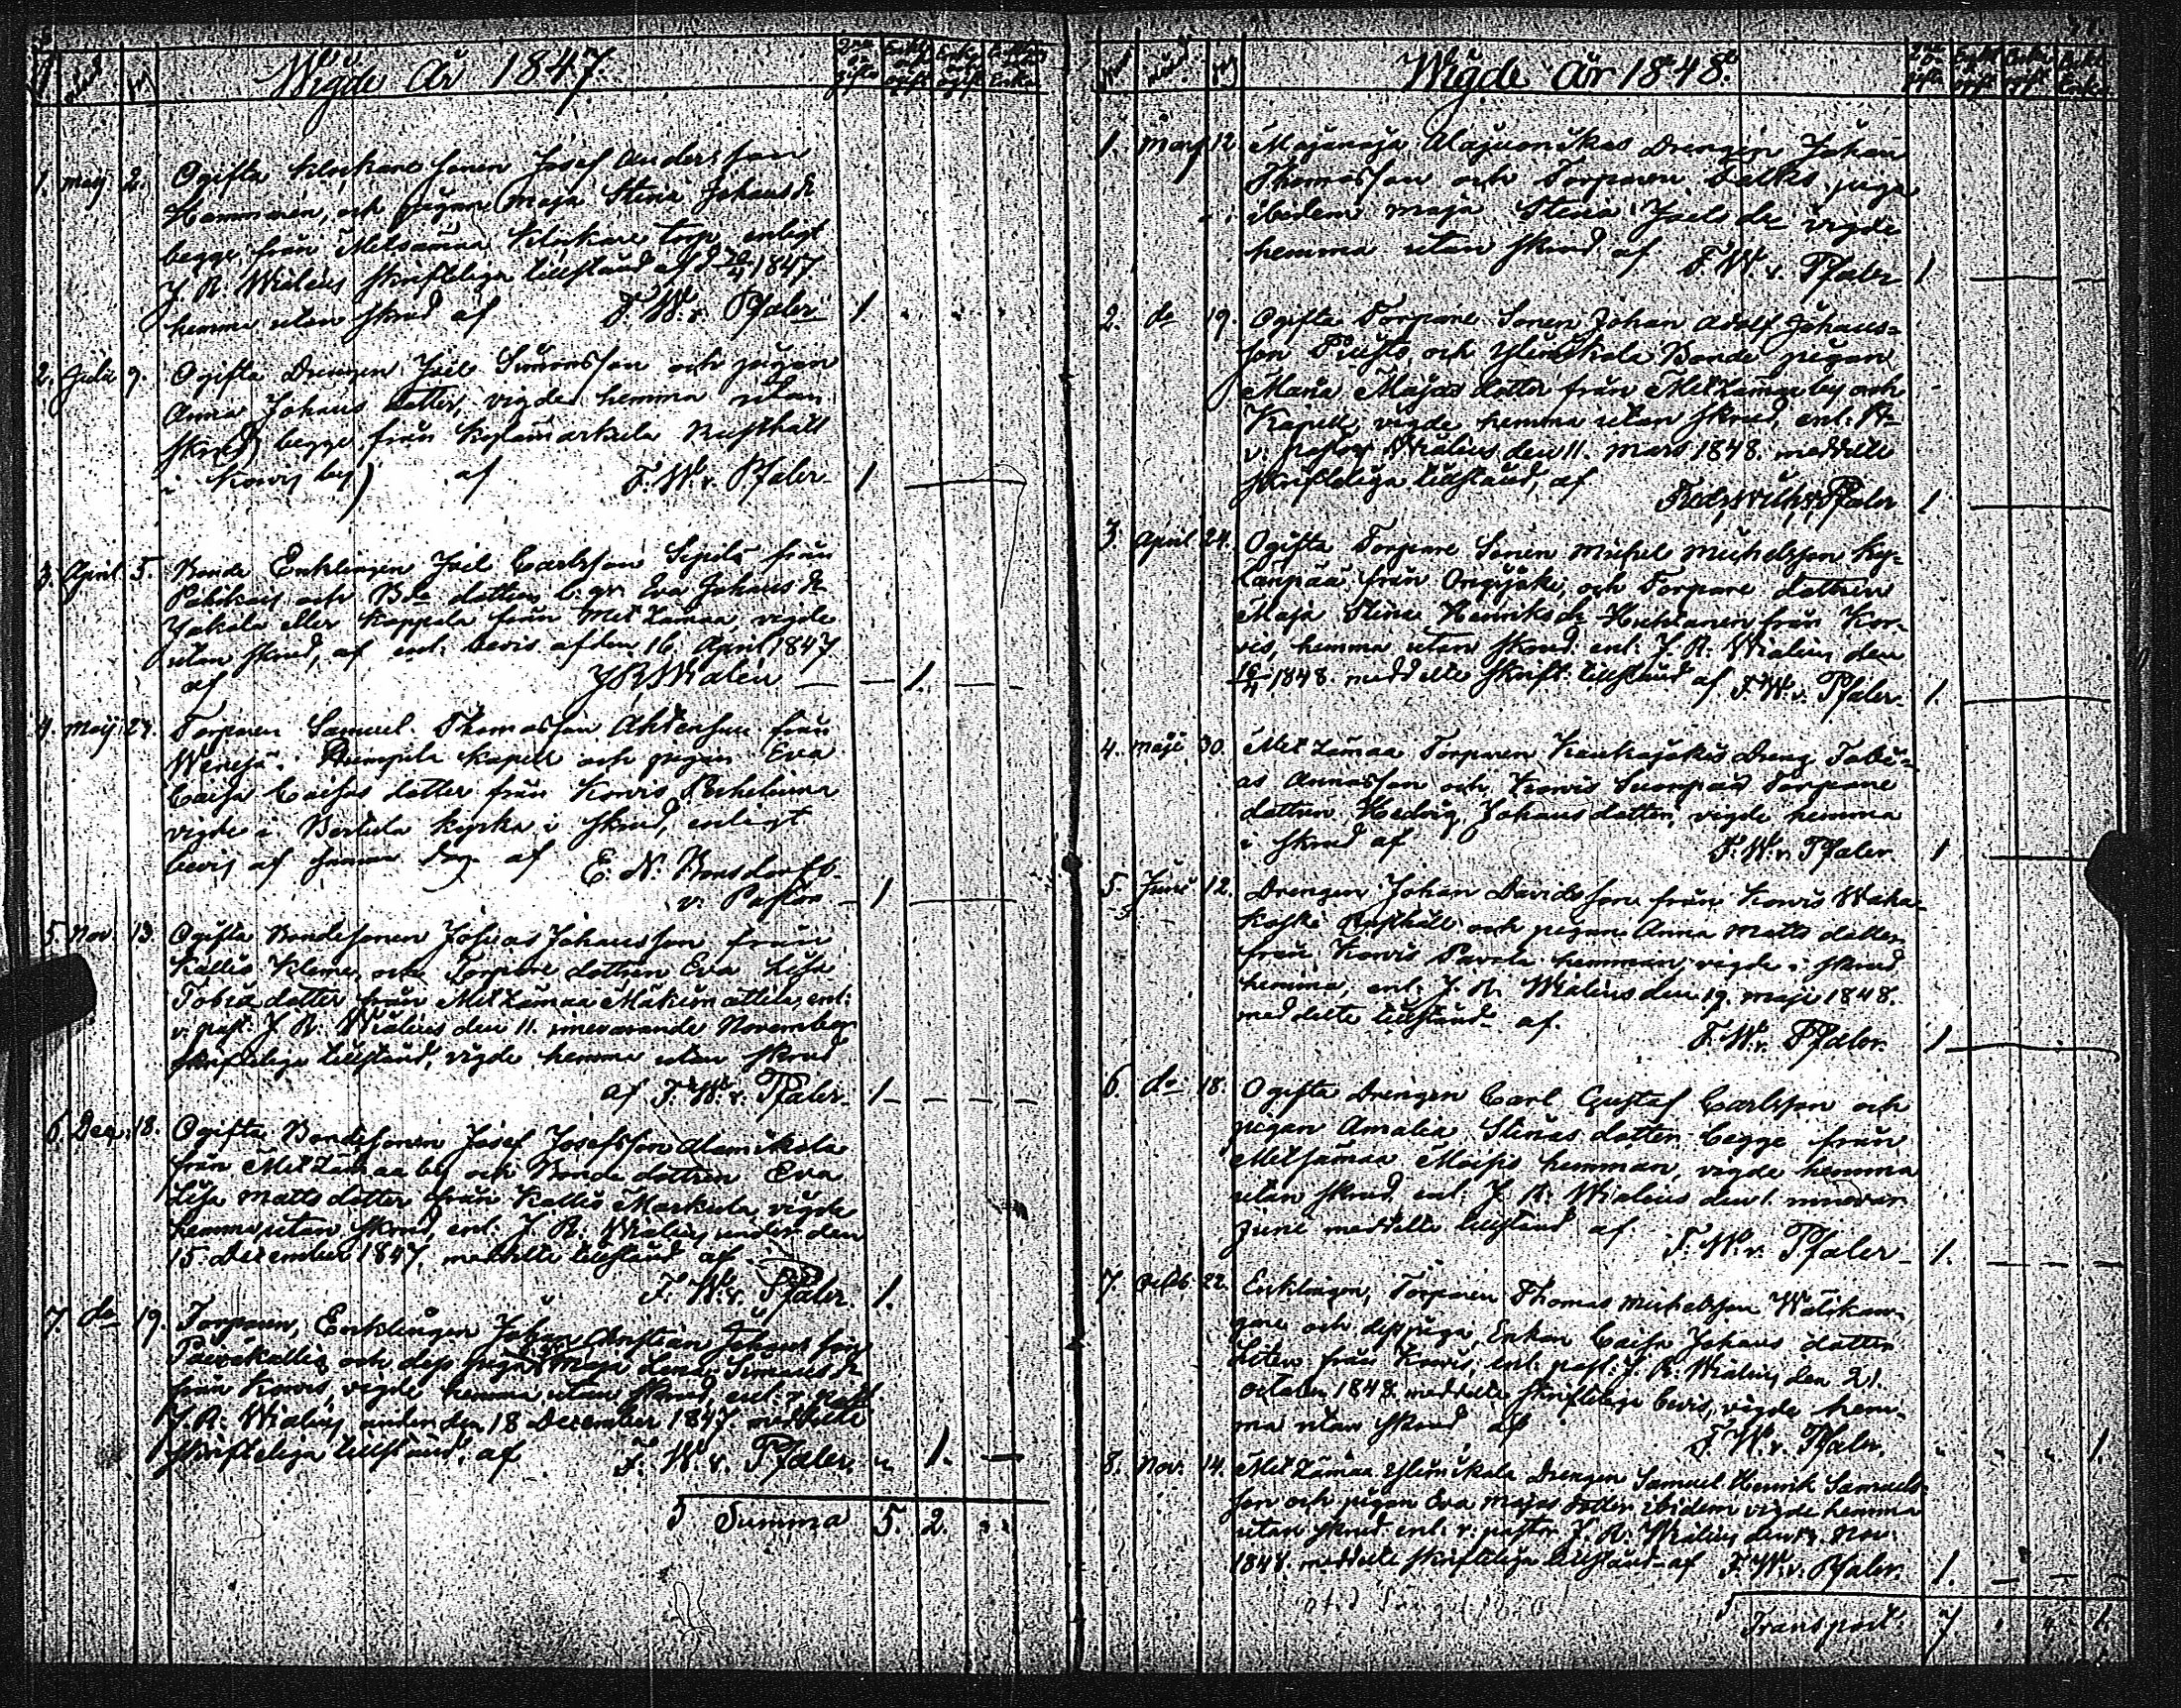 Wigde År 1847.
1. Maij 2. Ogifta Klockare Sonen Josef Andersson
Hammarén, och pigan Maja Stina Johans dr
begge från Metsämaa Klockare torp, enligt
J. R. Wialéns skrifteliga tillstånd af d 1847
hemma utan skrud af F. W. v. Pfaler 1
2. Julii 9. Ogifta Drengen Joel Simonsson och pigan
Anna Johans dotter, vigde hemma utan
skrud, begge från Rusthåll
i Korvis by) af F. W. v. Pfaler 1
3. April 5. Bonde Enklingen Joel Carlsson Sepilä från
och Bde dottren Eva Johans dr
Jakola eller Kappala från Metzämaa, vigde
utan skrud, af enl. bevis af den 16. April 1847
af J R Wialén 1.
4. Maij 24. Torparen Samuel Thomasson från
Kapell och pigan Eva
Caisa Caisas dotter från Korvis
vigde i kyrka i skrud, enligt
bevis af samma dag af E. N. Bonsdorff
v. Pastor 1
5. Nov. 13. Ogifta Bondesonen Josuas Johansson från
Kallis Klemes, och Torpare dottren Eva Lisa
Tobias dotter från Metzämaa enl.
v. past. J. R. Wialéns den 11. innevarande November
skrifteliga tillstånd, vigde hemma utan skrud
af F. W. v. Pfaler 1
6. Dec. 18. Ogifta Bondesonen Josef Josefsson Alamikola
från Metzämaa by och Bonde dottren Eva
Lisa Matts dotter från Kallis Markula, vigde
hemma utan skrud, enl. J. R. Wialéns under den
15. December 1847. meddelte tillstånd af
F. W. v. Pfaler. 1.
7. do 19. Torparen, Enklingen Johan Christian Johansson
Päivikallio och dess piga Maja Lena Simons dr
från Korvis, vigde hemma utan skrud, enl. v. past.
J. R. Wialéns under den 18 December 1847. meddelte
skrifteliga tillstånd, af F. W. v. Pfaler. 1.
Summa 5. 2.
Wigde År 1848.
1. Mars 12. Drengen Johan
Thomasson och Torparen piga
ibidem Maja Stina Joels dr vigde
hemma utan skrud af F. W. v. Pfaler 1
2. do 19. Ogifta Torpare Sonen Johan Adolf Johans-
son och Ylimikola Bonde pigan
Maria Majas dotter från Metzämaa by och
Kapell, vigde hemma utan skrud, enl.
v. pastor Wialéns den 11. Mars 1848. meddelte
skrifteliga tillstånd, af v. Pfaler 1
3. April 24. Ogifta Torpare Sonen Michel Michelsson Ky-
länpää från Oripää, och Torpare dottren
Maja Stina Henriks dr Huhtanen från Kor-
vis, hemma utan skrud, enl. J. R. Wialéns den
1848. meddelte skrift. tillstånd af F. W. v. Pfaler. 1.
4. Maji 30. Metzämaa Torparen Kaukajokis Dreng Tobi-
as Annasson och Korvis Suonpää Torpare
dottren Hedvig Johans dotter, vigde hemma
i skrud af F. W. v. Pfaler 1
5. Junii 12. Drengen Johan Davidsson från Korvis Waha-
koski Rusthåll och pigan Anna Matts dotter
från Korvis Pavola hemman, vigde i skrud
hemma, enl. J. R. Wialéns den 19. Maji 1848.
meddelte tillstånd af. F. W. v. Pfaler. 1
6. do 18. Ogifta Drengen Carl Gustaf Carlsson och
pigan Amalia Stinas dotter begge från
Metsämaa Moisio hemman, vigde hemma
utan skrud enl. J. R. Wialéns den 1. innevar.
Junii meddelte tillstånd af F. W. v. Pfaler 1.
7. Octob. 22. Enklingen, Torparen Thomas Michelsson
och dess piga, Enkan Caisa Johans dotter
från Korvis, enl. past. J. R. Wialéns den 21.
October 1848 meddelte skrifteliga bevis, vigde hem-
ma utan skrud af F. W. v. Pfaler. 1.
8. Nov. 14. Metzämaa Ylimikola Drengen Samuel Henrik Samuels-
son och pigan Eva Majas dotter ibidem vigde hemma
utan skrud enl. v. pastor J. R. Wialéns den Nov.
1848. meddelte skrifteliga tillstånd af F. W. v. Pfaler. 1.
Transport. 7 1.